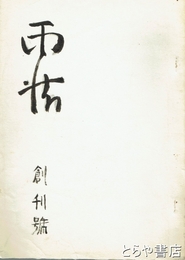 雨
創刊號
とらや書店